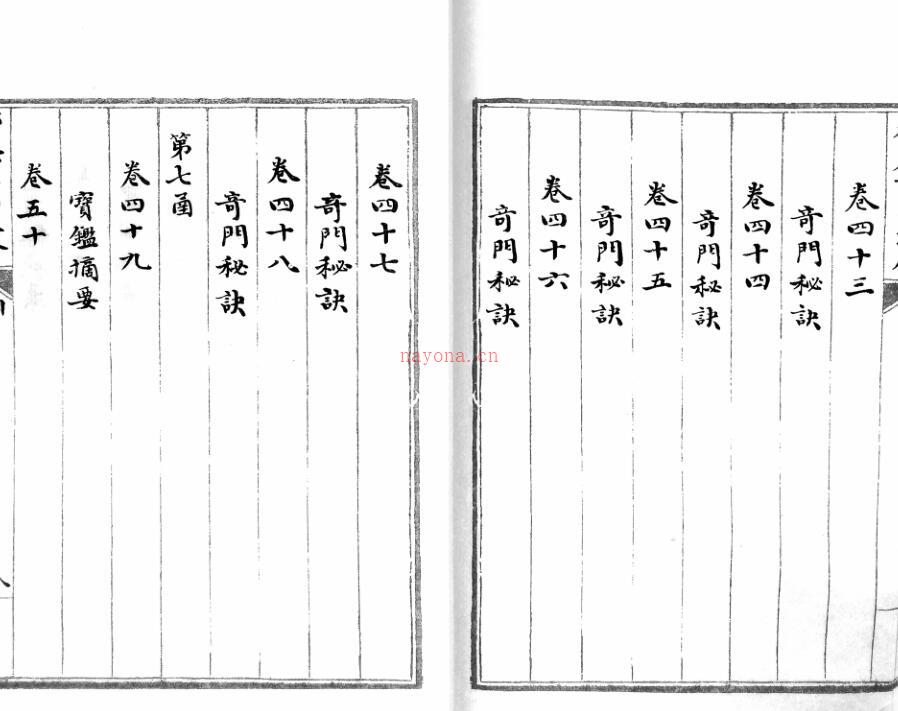 卷四十三
奇門秘訣
卷四十四
奇門秘訣
卷四十五
奇門秘訣
卷四十六
奇門秘訣
卷四十七
奇門秘訣
卷四十八
奇門秘訣
第七函
卷四十九
寶鑑摘要
卷五十
nayona.cn